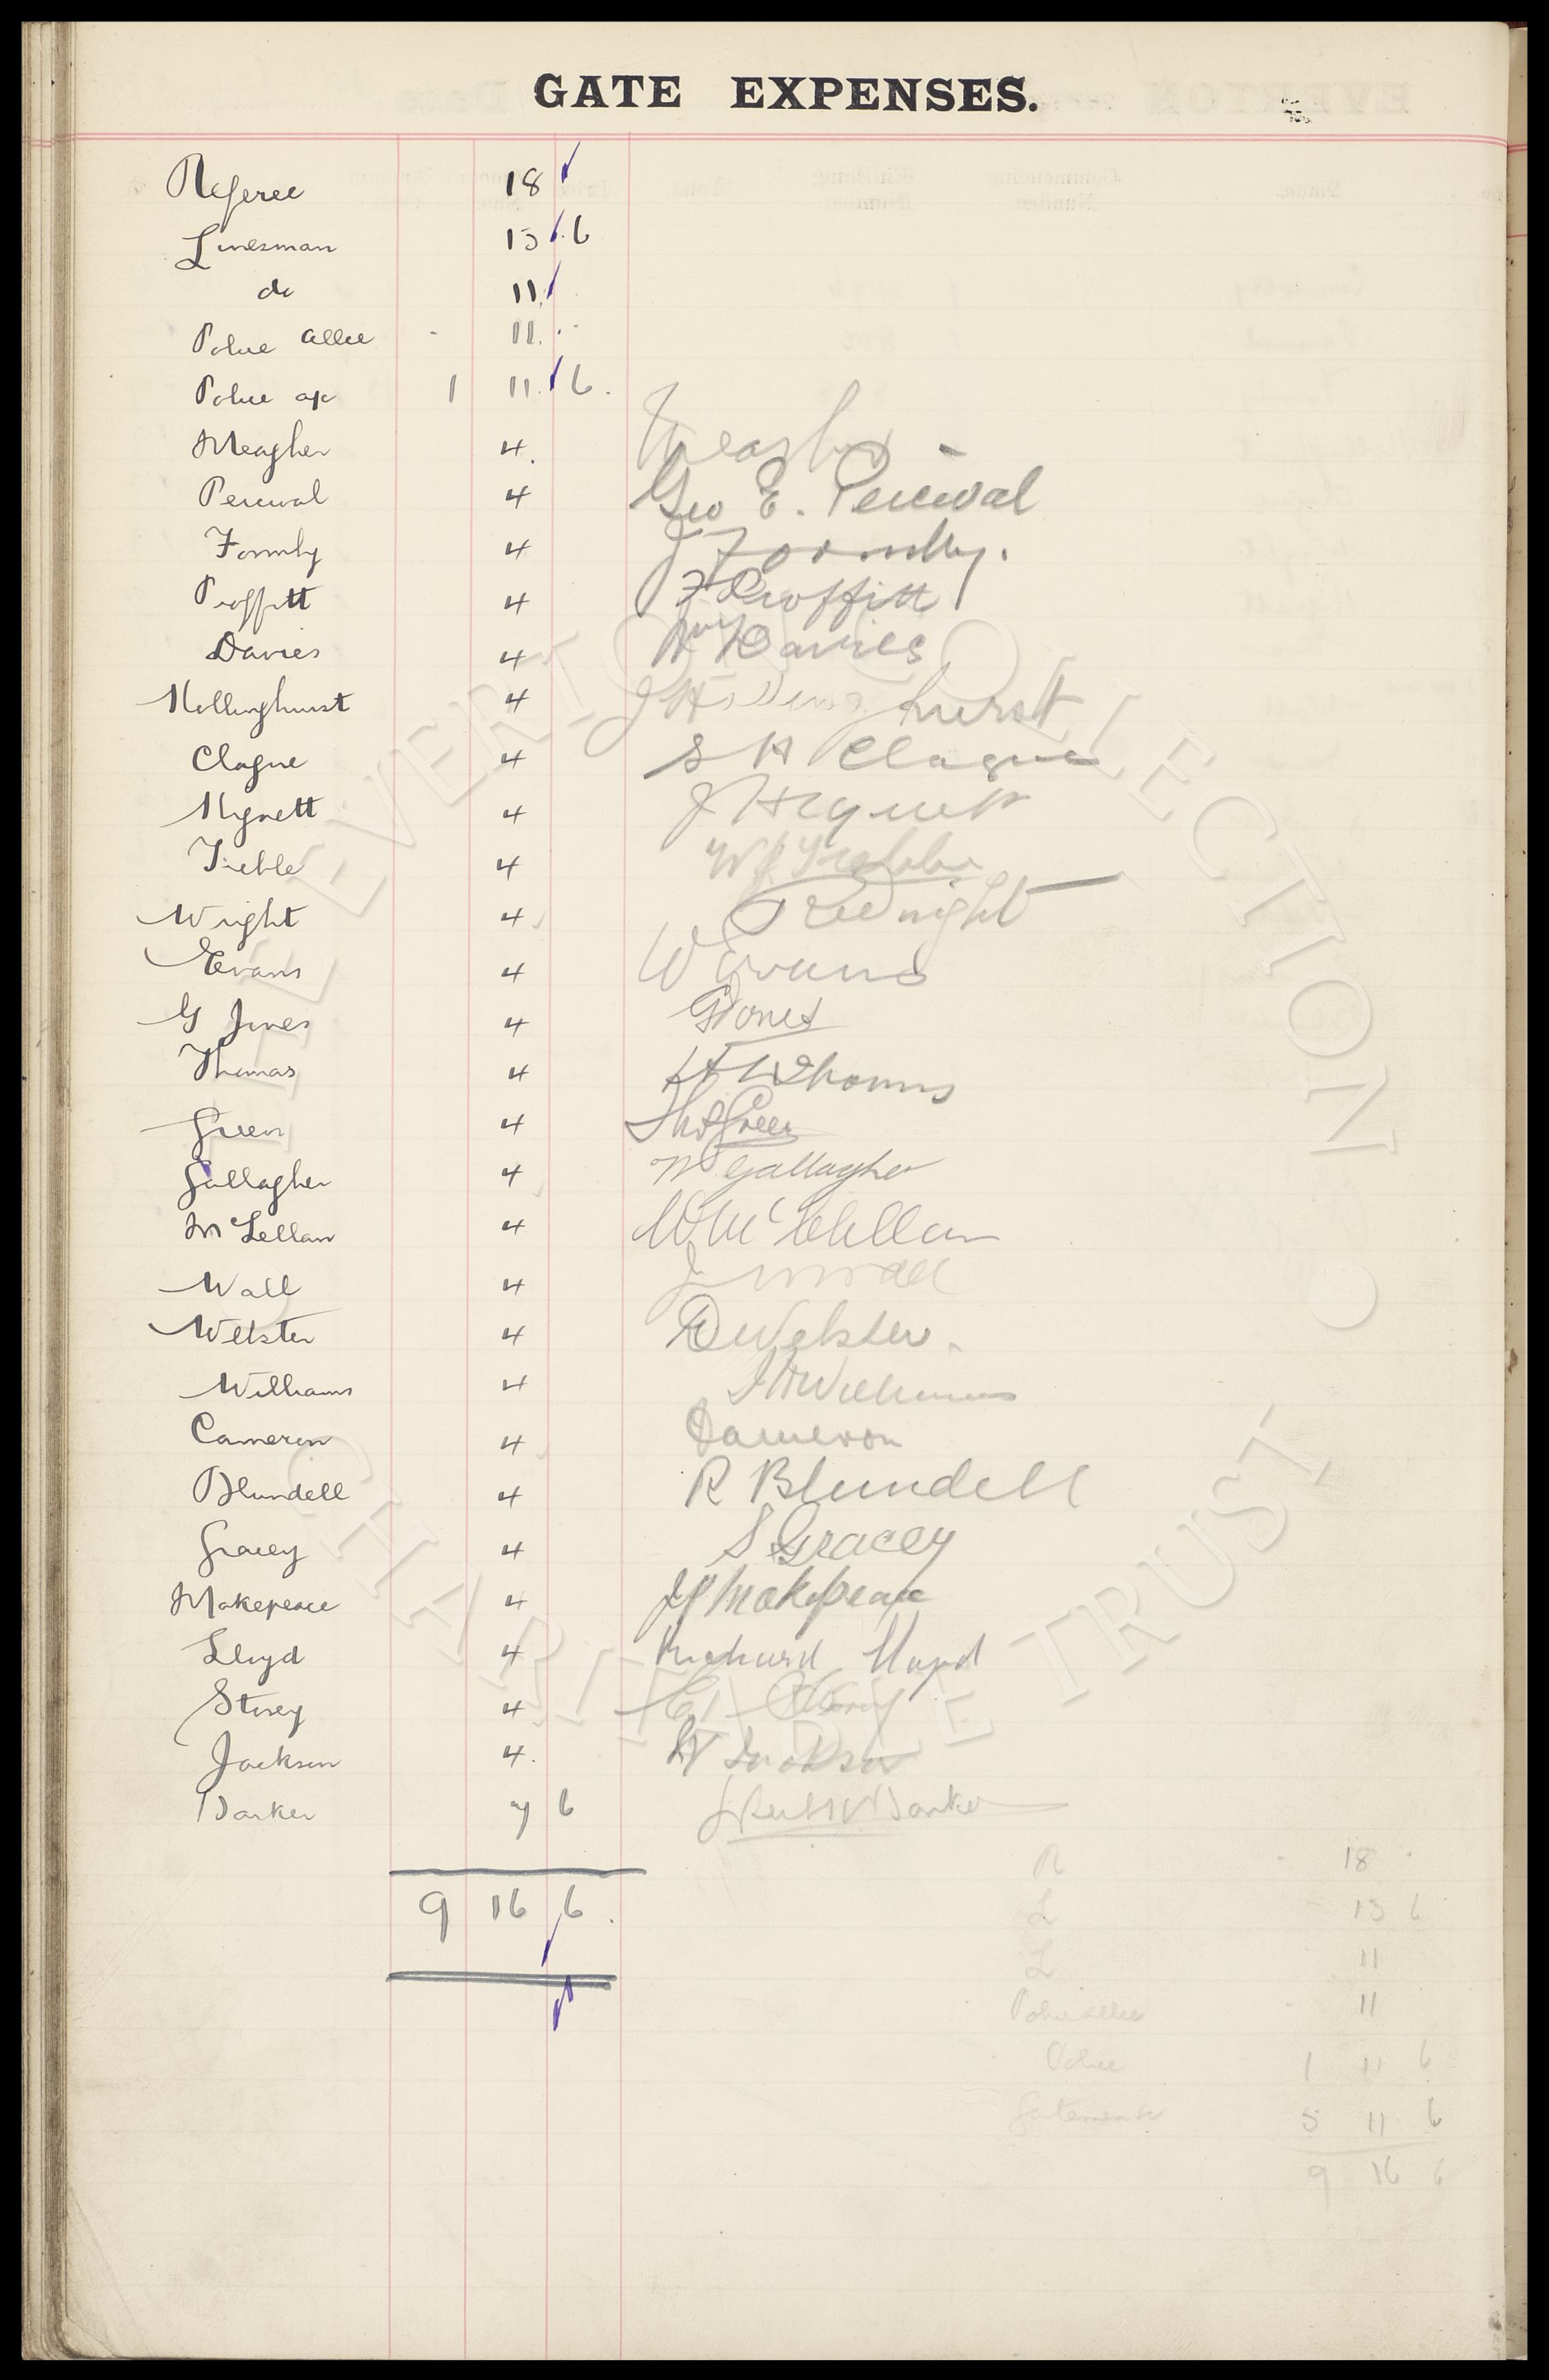 GATE EXPENSES.
Referee 18
Linesman 15 6
do 11
Police allce 11
Police a/c 1 11 6
Meagher 4 Meagher
Percival 4 Geo E. Percival
Formby 4 J Formby.
Proffitt 4 F Proffitt
Davies 4 Wm Davies
Hollinghurst 4 J Hollinghurst
Clague 4 S H Clague
Hignett 4 J Hignett
Treble 4 W J Treble
Wright 4 Wright
Evans 4 W Evans
G Jones 4 G Jones
Thomas 4 Thomas
Green 4 Thos Green
Gallagher 4 W Gallagher
McLellan 4 W McLellan
Wall 4 J Wall
Webster 4 Webster.
Williams 4 Williams
Cameron 4 Cameron
Blundell 4 R Blundell
Gracey 4 S Gracey
Makepeace 4 Makepeace
Lloyd 4 Richard Lloyd
Storey 4 Storey
Jackson 4. Jackson
Barker 7 6 Barker
9 16 6
R 18
L 15 6
L 11
Police allce 11
Police 1 11 6
Gatemen 5 11 6
9 16 6
THE EVERTON COLLECTION CHARITABLE TRUST